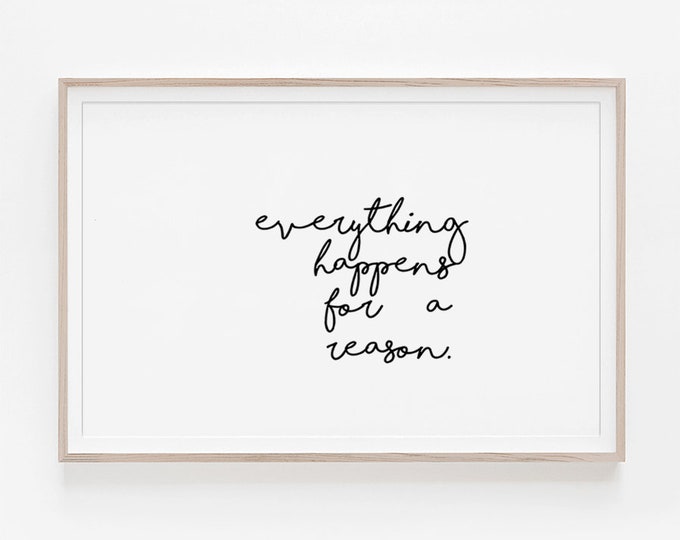 everything
happens
for a
reason.